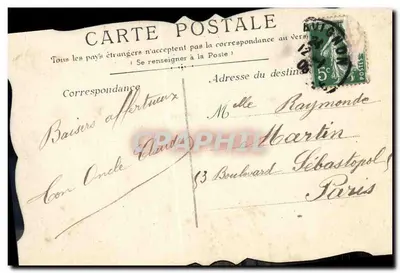 CARTE POSTALE
Tous les pays étrangers n'acceptent pas la correspondance au verso
(Se renseigner à la Poste)
Correspondance
Adresse du destinataire
AVIGNON
5c
Baisers affectueux
Ton Oncle
Melle Raymonde
Martin
13 Boulevard Sébastopol
Paris
CPRPHOTOS